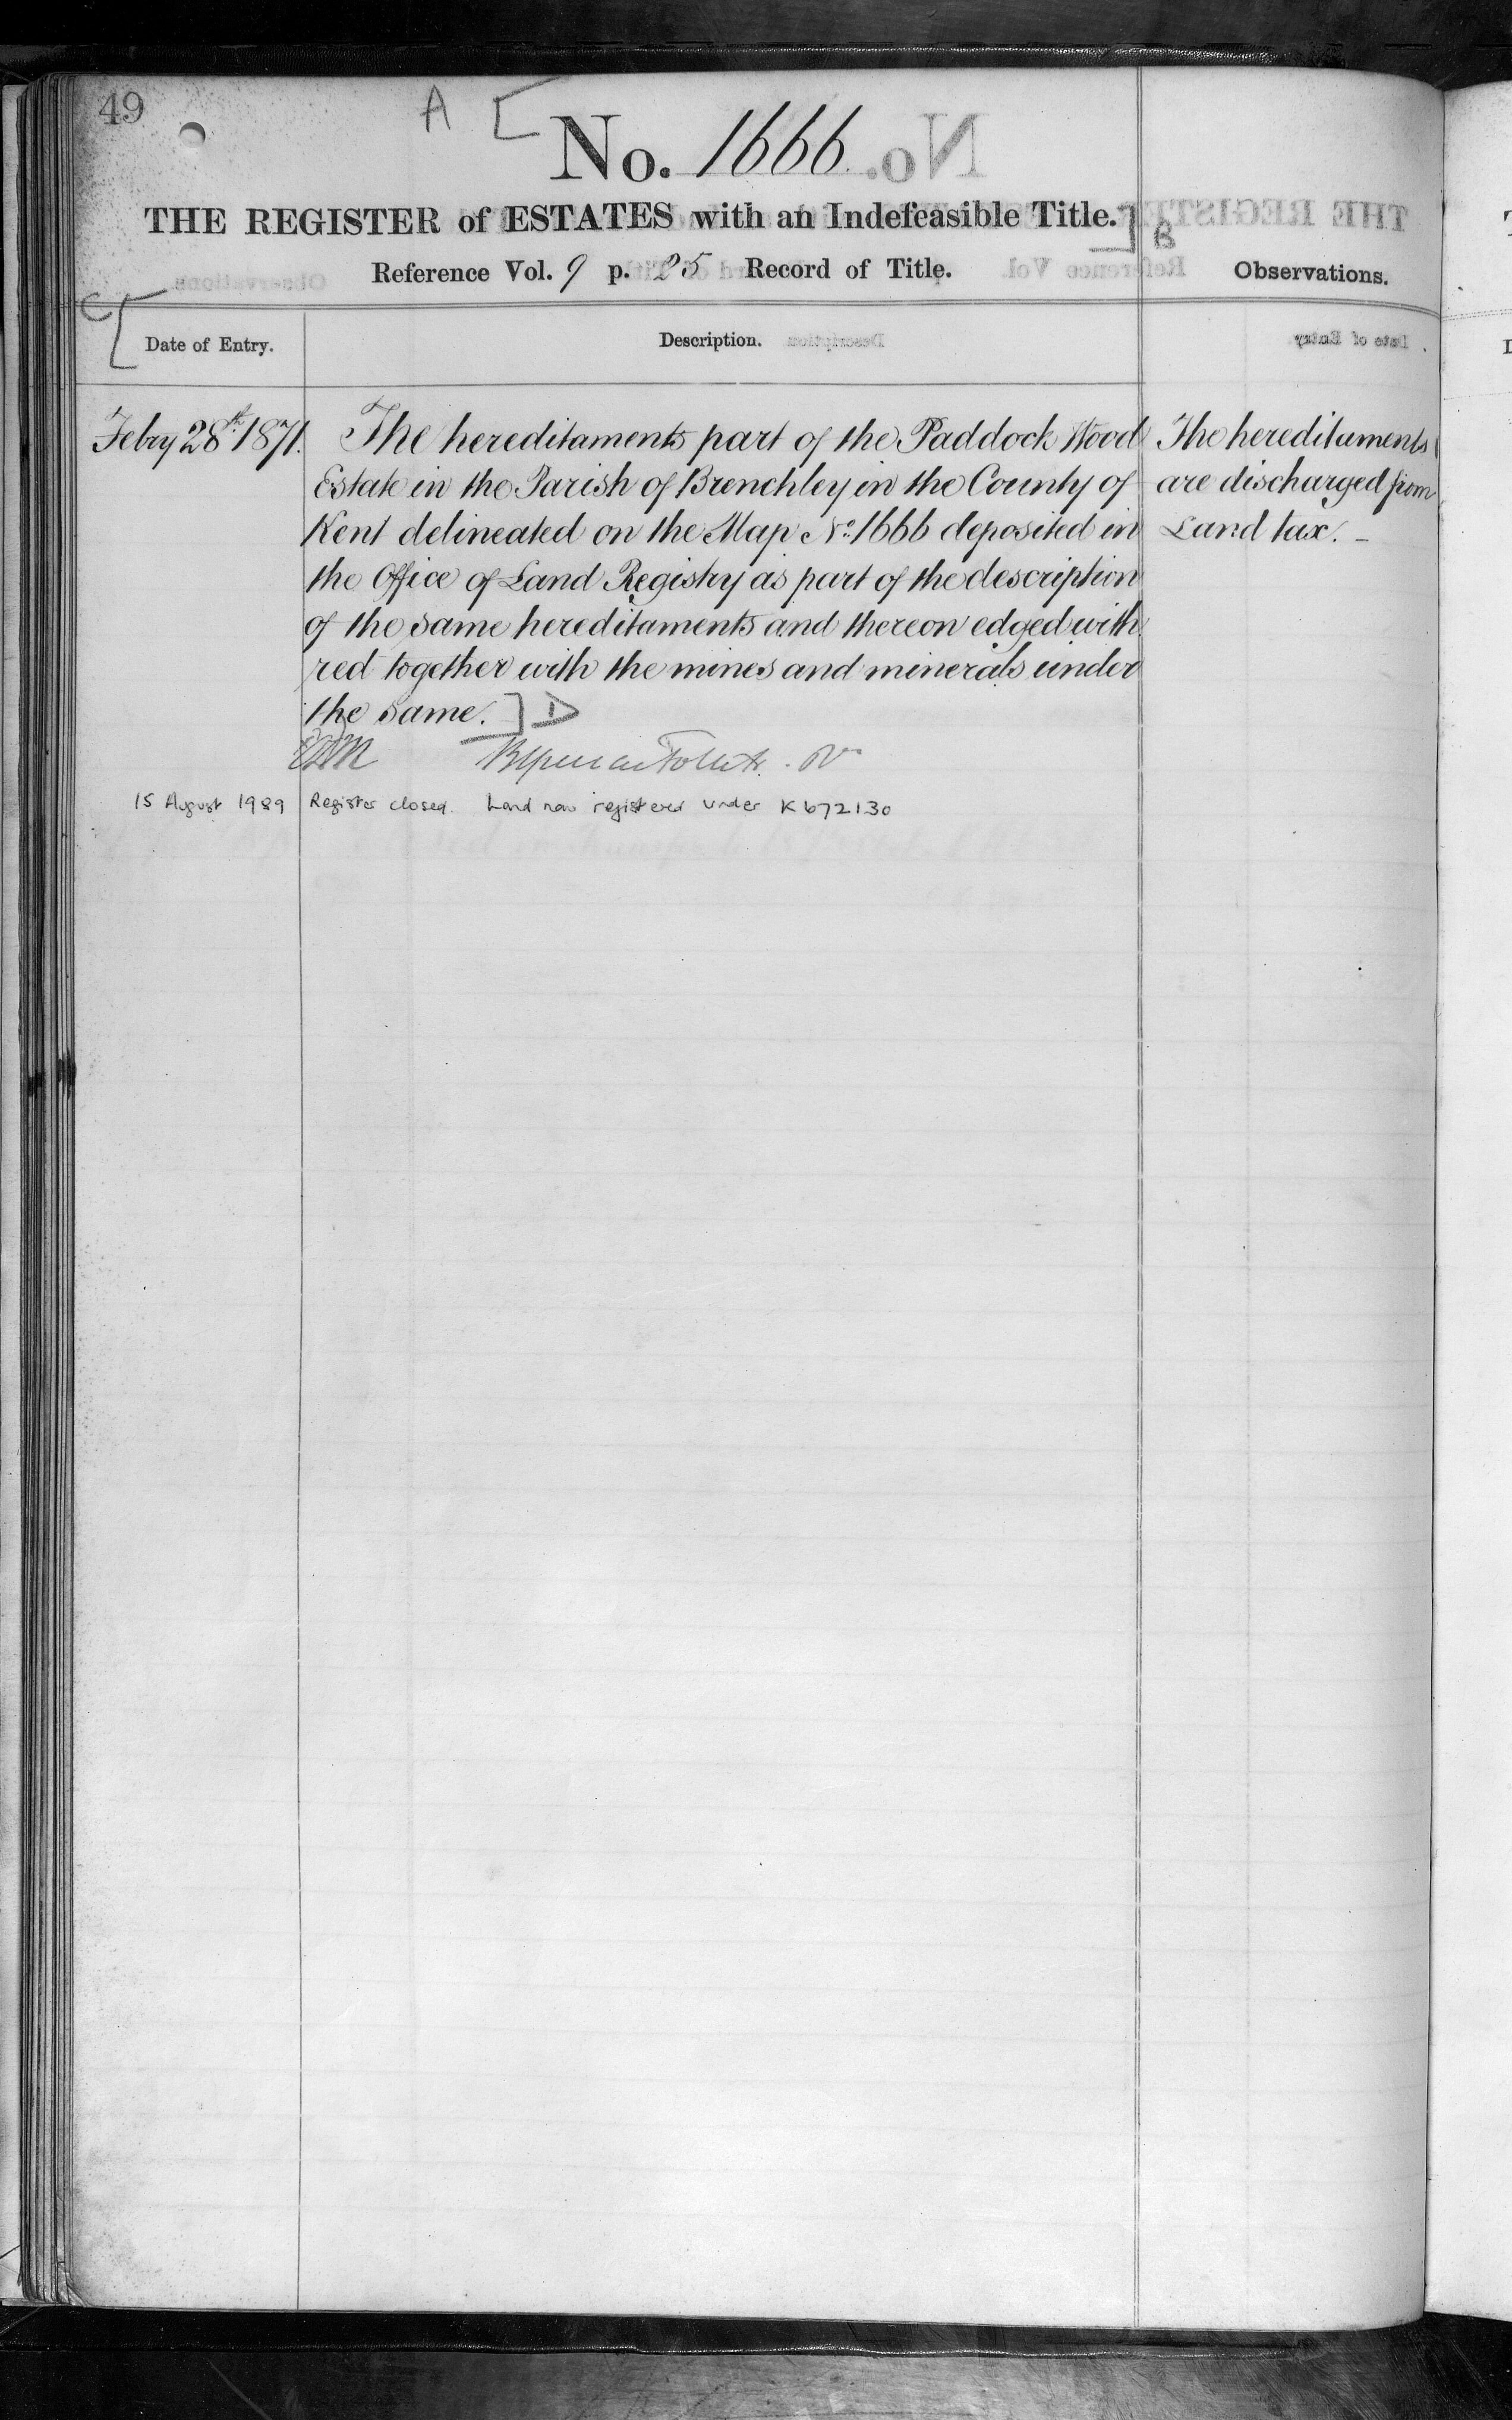 49
A [
No. 1666.
THE REGISTER of ESTATES with an Indefeasible Title. ] B
Reference Vol. 9 p. 25 Record of Title.
Observations.
C [
Date of Entry.
Description.
Febry 28th 1871.
The hereditaments part of the Paddock Wood
Estate in the Parish of Brenchley in the County of
Kent delineated on the Map No. 1666 deposited in
the Office of Land Registry as part of the description
of the same hereditaments and thereon edged with
red together with the mines and minerals under
the same. ] D
The hereditaments
are discharged from
Land tax. –
15 August 1989 Register closed. Land now registered under K672130